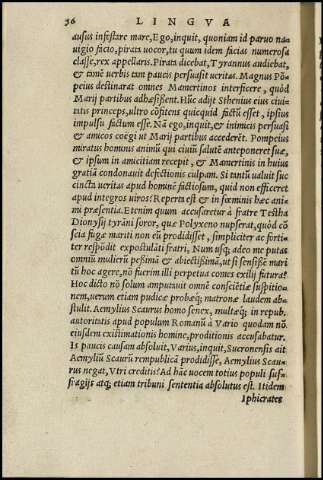 36 LINGVA
ausus infestare mare, Ego, inquit, quoniam id paruo na-
uigio facio, pirata uocor, tu quum idem facias numerosa
classe, rex appellaris. Pirata dicebat, Tyrannus audiebat,
& tamē uerbis tam paucis persuasit ueritas. Magnus Pō-
peius destinarat omnes Mamertinos interficere, quòd
Marij partibus adhæsissent. Huc adijt Sthenius eius ciui-
tatis princeps, ultro cōfitens quicquid factū esset, ipsius
impulsu factum esse. Nā ego, inquit, & inimicis persuasi
& amicos coëgi ut Marij partibus accederēt. Pompeius
miratus hominis animū qui ciuiū salutē anteponeret suæ,
& ipsum in amicitiam recepit, & Mamertinis in huius
gratiā condonauit defectionis culpam. Si tantū ualuit suc
cincta ueritas apud hominē factiosum, quid non efficeret
apud integros uiros? Reperta est & in fœminis hæc ani-
mi præsentia. Etenim quum accusaretur à fratre Testha
Dionysij tyrāni soror, quæ Polyxeno nupserat, quòd cō
scia fugæ mariti non eū prodidisset, simpliciter ac forti-
ter respōdit expostulāti fratri, Num usq; adeo me putas
omniū mulierū pessimā & abiectissimā, ut si sensissē mari
tū hoc agere, nō fuerim illi perpetua comes exilij futura?
Hoc dicto nō solum amputauit omnē conscientiæ suspitio-
nem, uerum etiam pudicæ probæq; matronæ laudem ab-
stulit. Aemylius Scaurus homo senex, multæq; in repub.
autoritatis apud populum Romanū à Vario quodam nō
eiusdem existimationis homine, proditionis accusabatur.
Is paucis causam absoluit, Varius, inquit, Sucronensis ait
Aemyliū Scaurū rempublicā prodidisse, Aemylius Scau-
rus negat, Vtri creditis? Ad hāc uocem totius populi suf-
fragijs atq; etiam tribuni sententia absolutus est. Itidem
Iphicrates